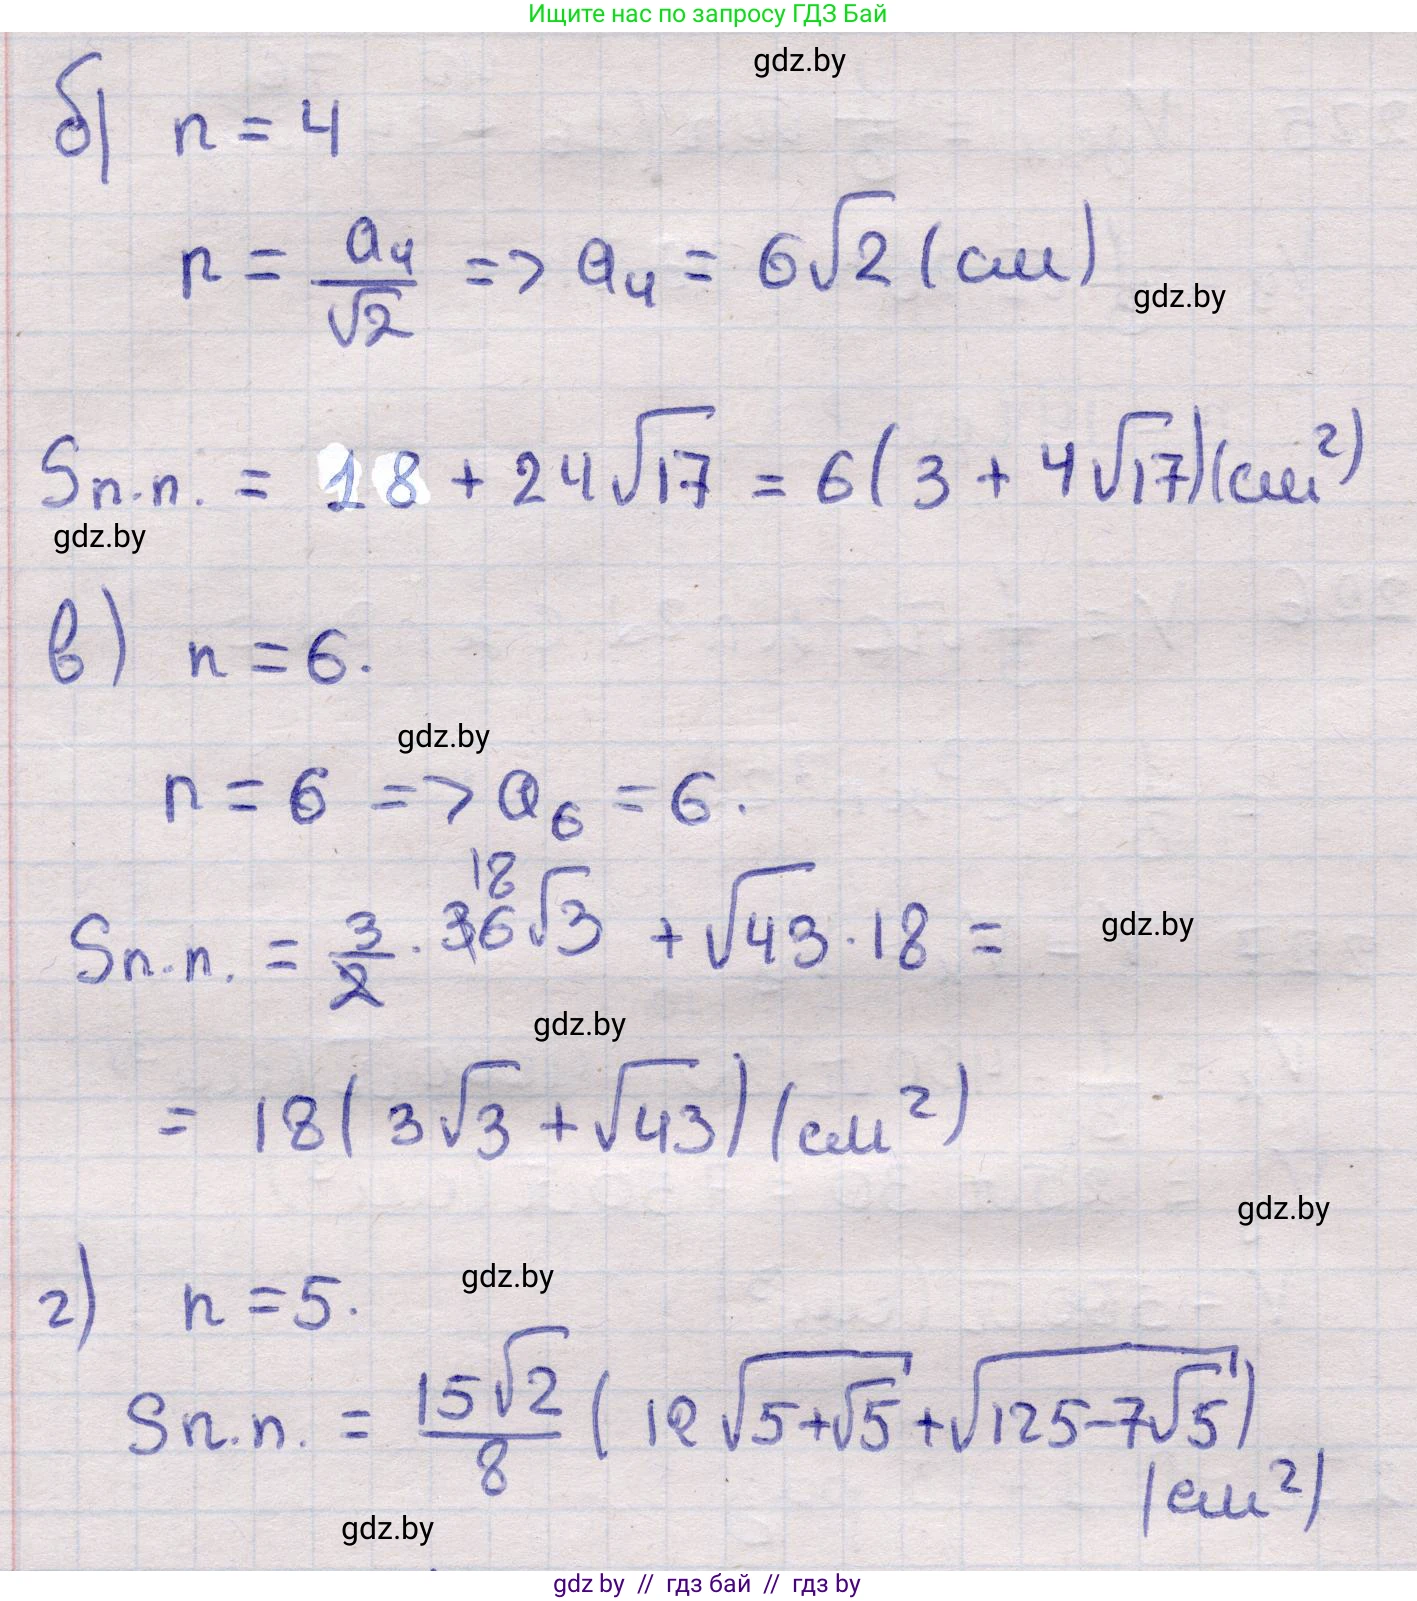 Ищите нас по запросу ГДЗ Бай
gdz.by
б) n = 4
r = a₄/√2 => a₄ = 6√2 (см)
gdz.by
Sп.п. = 18 + 24√17 = 6(3 + 4√17)(см²)
gdz.by
в) n = 6.
gdz.by
r = 6 => a₆ = 6.
18
Sп.п. = 3/2 · 36√3 + √43 · 18 =
gdz.by
gdz.by
= 18(3√3 + √43) (см²)
gdz.by
г) n = 5.
gdz.by
Sп.п. = 15√2/8 (12√(5+√5) + √(125-7√5))
(см²)
gdz.by
gdz by // гдз бай // гдз by